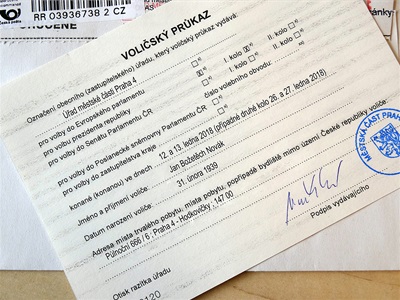 RR 03936738 2 CZ
VOLIČSKÝ PRŮKAZ
Označení obecního (zastupitelského) úřadu, který voličský průkaz vydává:
Úřad městské části Praha 4
pro volby do Evropského parlamentu
pro volbu prezidenta republiky I. kolo II. kolo
pro volby do Senátu Parlamentu ČR I. kolo II. kolo
číslo volebního obvodu:
pro volby do Poslanecké sněmovny Parlamentu ČR
pro volby do zastupitelstva kraje
konané (konanou) ve dnech 12. a 13. ledna 2018 (případné druhé kolo 26. a 27. ledna 2018)
Jméno a příjmení voliče: Jan Božetěch Novák
Datum narození voliče: 31. února 1939
Adresa místa trvalého pobytu, místa pobytu, popřípadě bydliště mimo území České republiky voliče:
Půlnoční 666 / 6 ; Praha 4 - Hodkovičky , 147 00
Podpis vydávajícího
Otisk razítka úřadu
MĚSTSKÁ ČÁST PRAHA